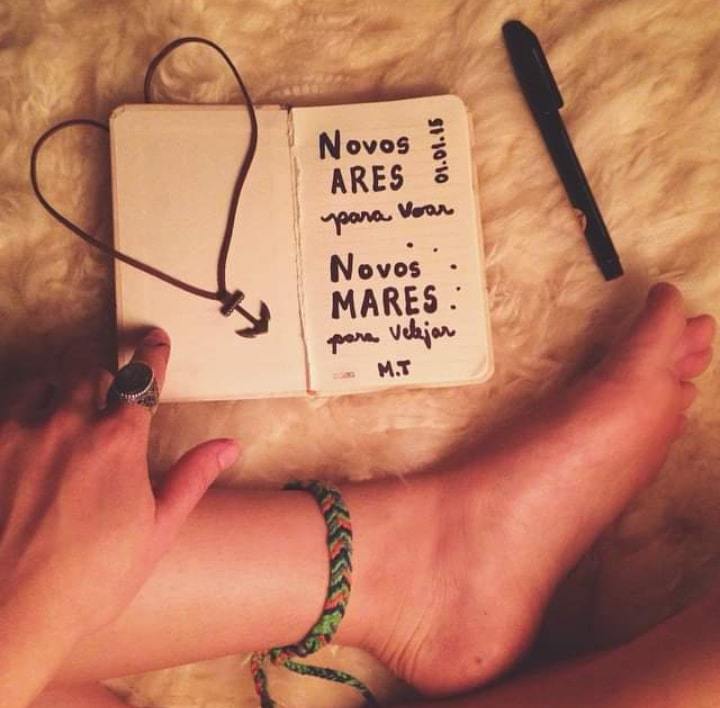 Novos
ARES
para Voar
01.01.15
Novos
MARES
para Velejar
M.T